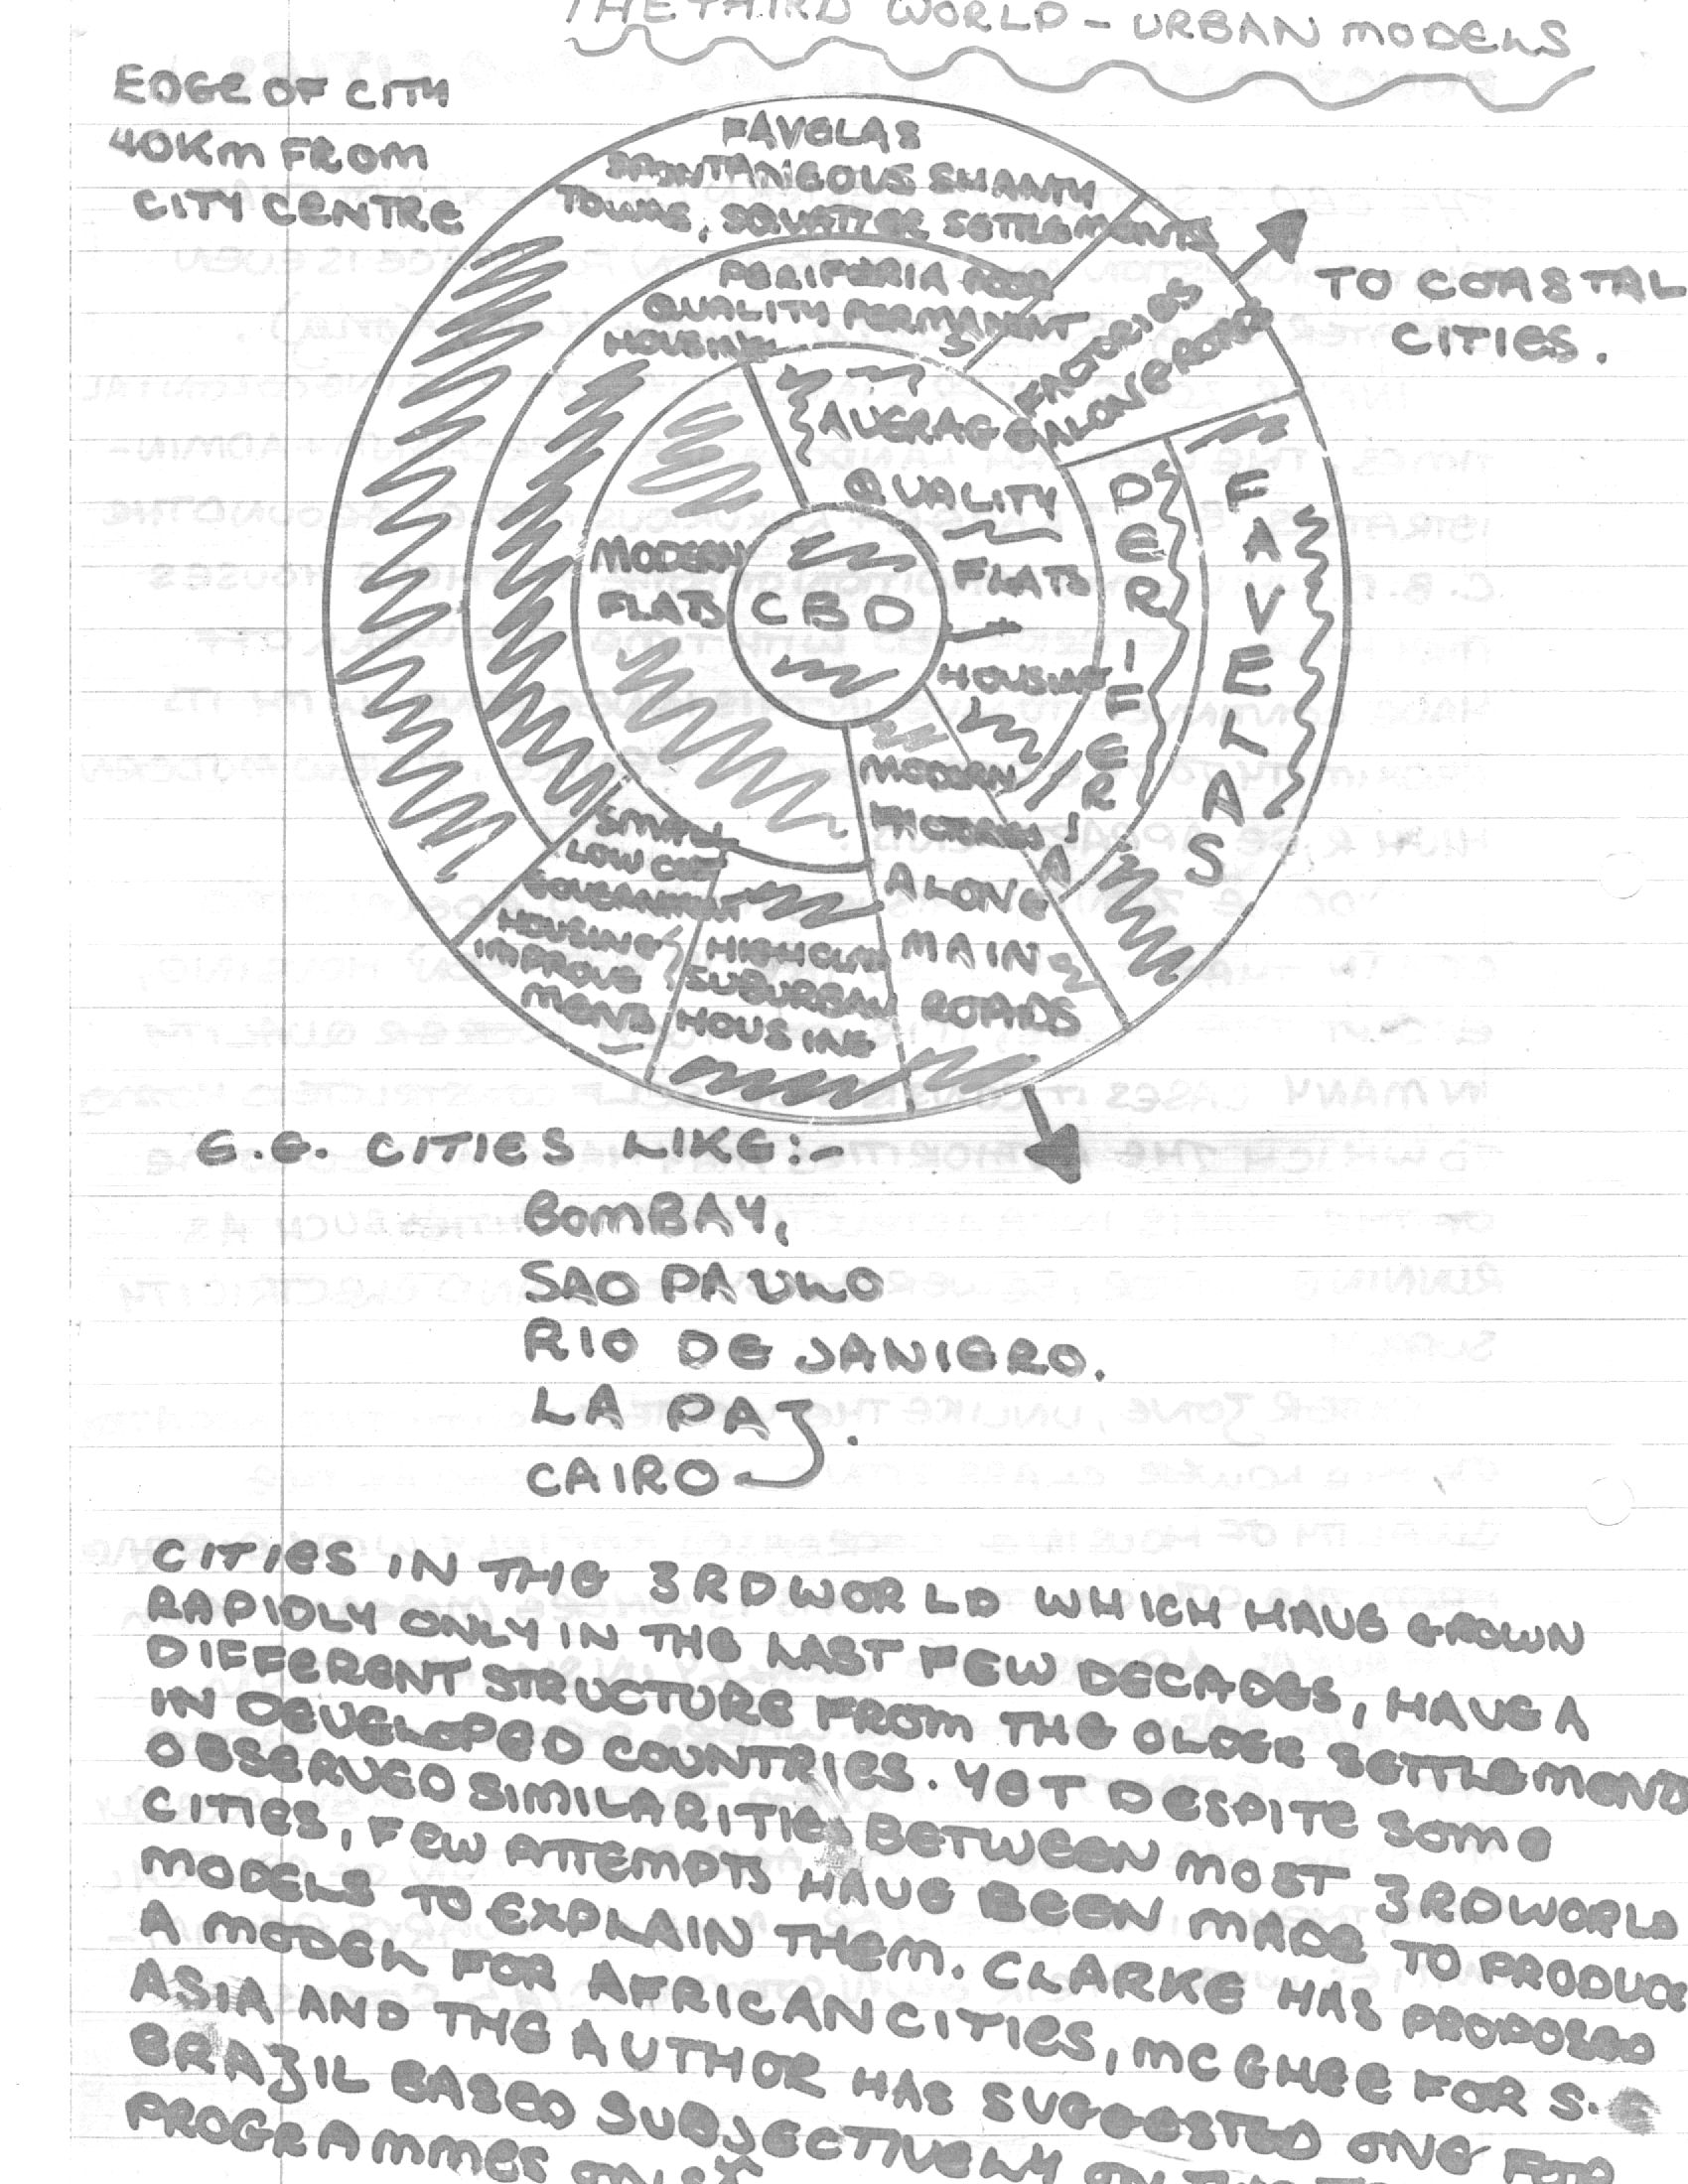 THE THIRD WORLD - URBAN MODELS
EDGE OF CITY
40Km FROM
CITY CENTRE
FAVELAS
SPONTANEOUS SHANTY
TOWNS, SQUATTER SETTLEMENTS
PERIFERIA POOR
QUALITY PERMANENT
HOUSING
FACTORIES
ALONG ROADS
TO COASTAL
CITIES.
AVERAGE
QUALITY
FLATS
HOUSING
MODERN
FLATS
CBD
PERIFERIA
FAVELAS
MODERN
FACTORIES
ALONG
MAIN
ROADS
SMALL
LOW COST
GOVERNMENT
HOUSING
IMPROVE
MENTS
HIGHCLASS
SUBURBAN
HOUSING
E.G. CITIES LIKE:-
BOMBAY,
SAO PAULO
RIO DE JANIERO.
LA PAZ.
CAIRO
CITIES IN THE 3RD WORLD WHICH HAVE GROWN
RAPIDLY ONLY IN THE LAST FEW DECADES, HAVE A
DIFFERENT STRUCTURE FROM THE OLDER SETTLEMENTS
IN DEVELOPED COUNTRIES. YET DESPITE SOME
OBSERVED SIMILARITIES BETWEEN MOST 3RD WORLD
CITIES, FEW ATTEMPTS HAVE BEEN MADE TO PRODUCE
MODELS TO EXPLAIN THEM. CLARKE HAS PROPOSED
A MODEL FOR AFRICAN CITIES, MCGHEE FOR S.E
ASIA AND THE AUTHOR HAS SUGGESTED ONE FOR
BRAZIL BASED SUBJECTIVELY ON
PROGRAMMES ON